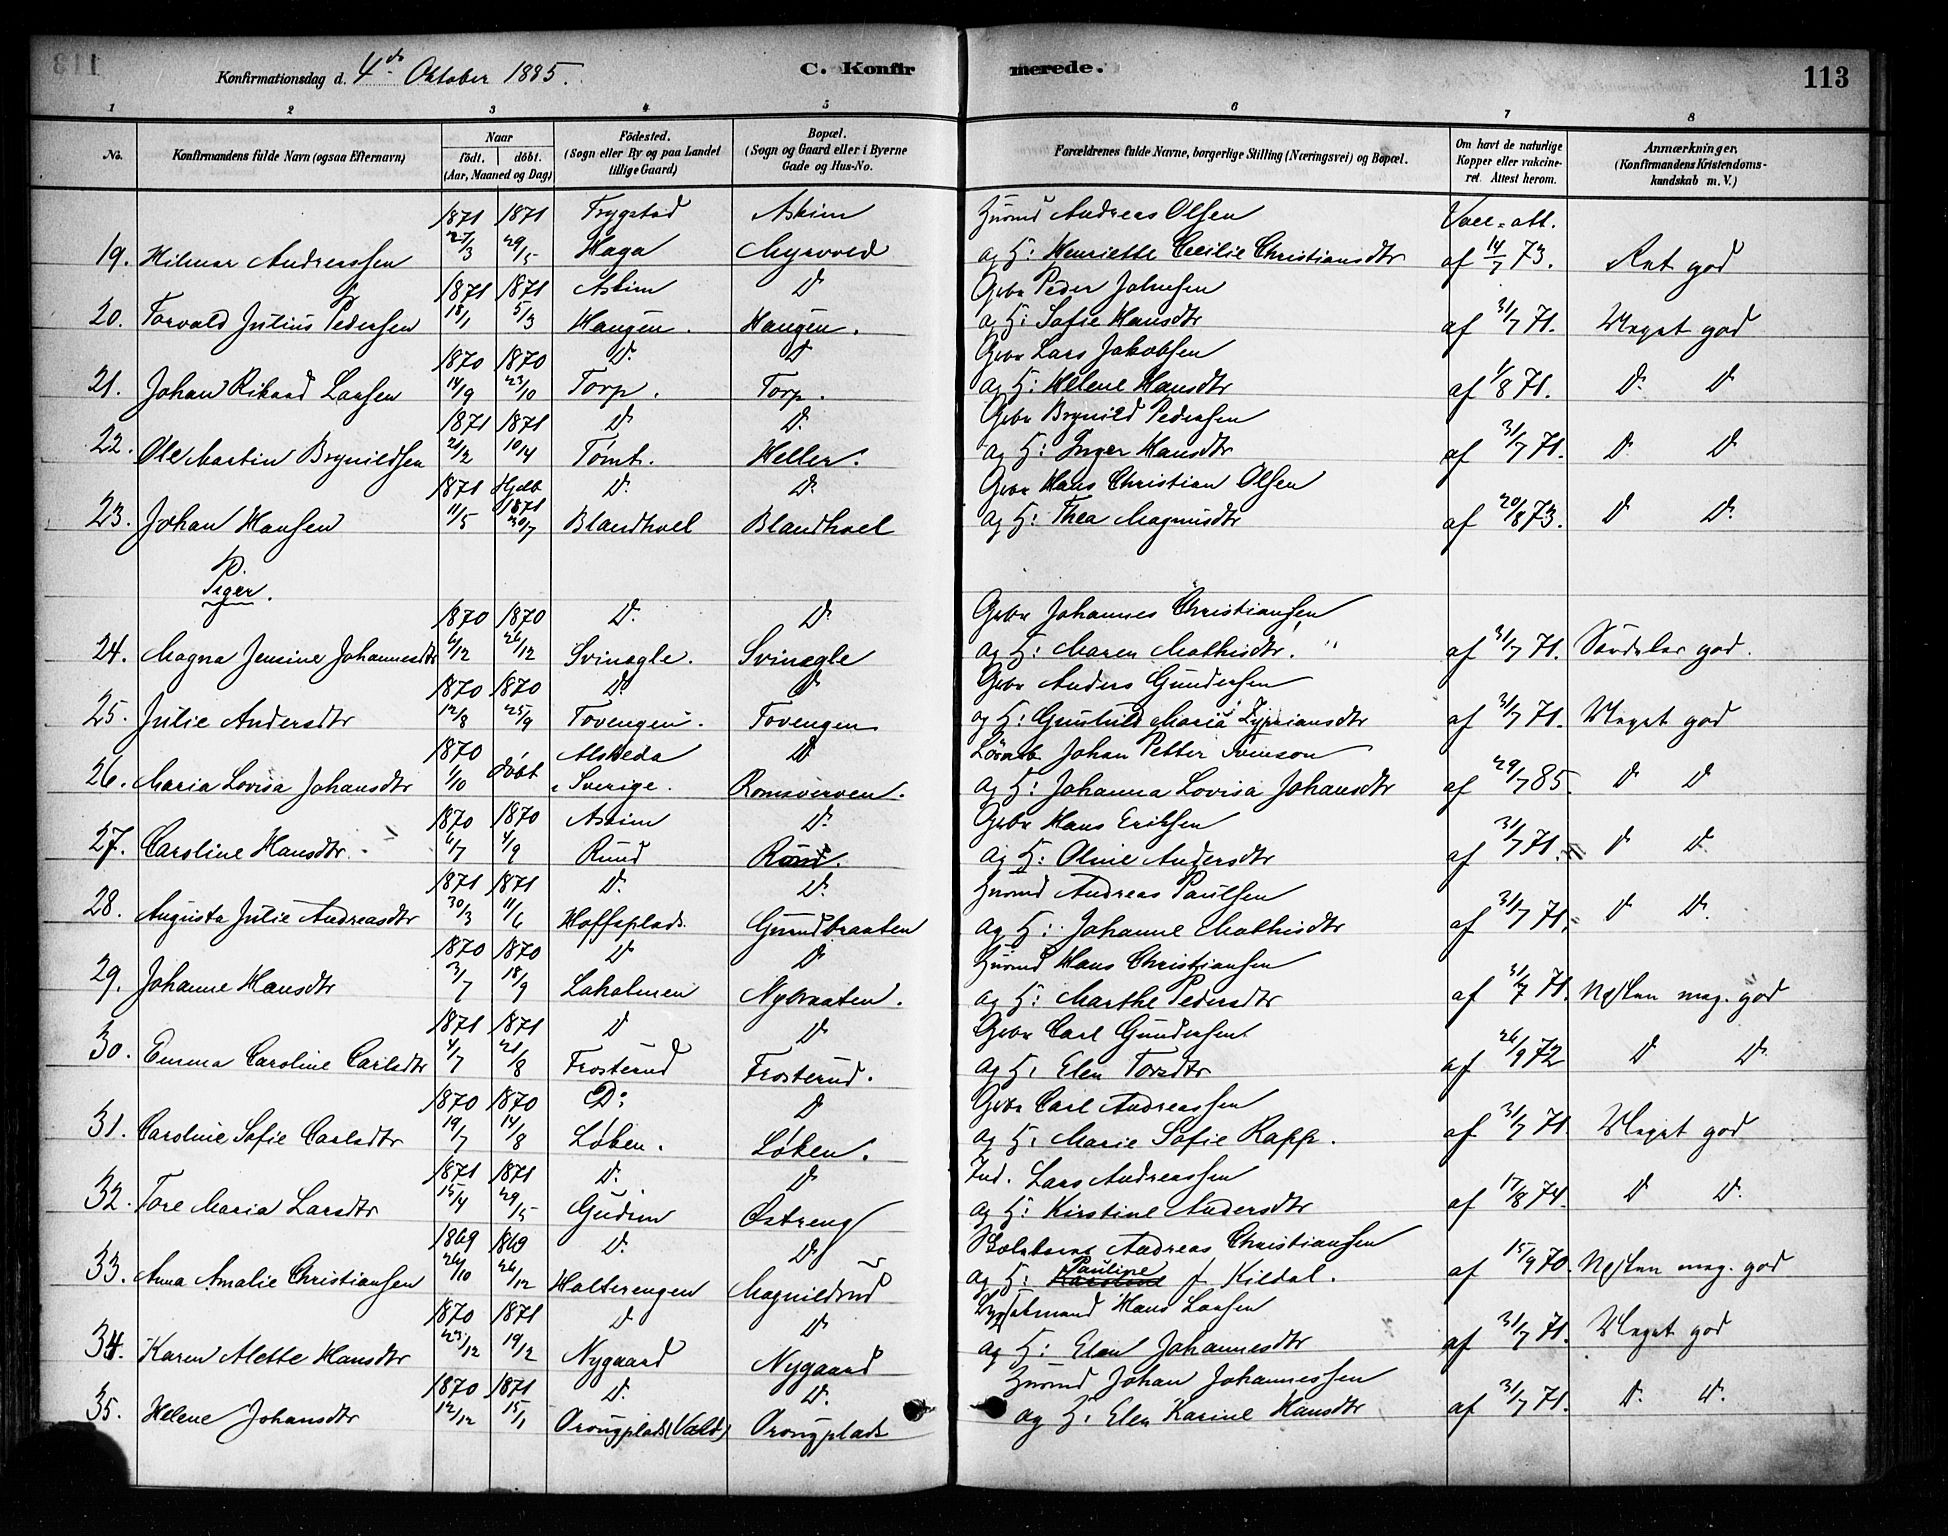 Konfirmationsdag d. 4de Oktober 1885.
C. Konfirmerede.
113
1 2 3 4 5 6 7 8
No.
Konfirmandens fulde Navn (ogsaa Efternavn)
Naar födt. döbt. (Aar, Maaned og Dag)
Födested. (Sogn eller By og paa Landet tillige Gaard)
Bopæl. (Sogn og Gaard eller i Byerne Gade og Hus-No.
Forældrenes fulde Navne, borgerlige Stilling (Næringsvei) og Bopæl.
Om havt de naturlige Kopper eller vakcineret. Attest herom.
Anmærkninger. (Konfirmandens Kristendomskundskab m. V.)
1871 1871 Trygstad Askim Husmd Andreas Olsen Vacc. att.
19. Hilmar Andreassen 27/3 29/5 Haga Myrvold og H: Henriette Cecilie Christiansdtr af 14/7 73. Ret god
1871 1871 Askim D Gbr Peder Johnsen
20. Torvald Julius Pedersen 18/1 5/3 Haugen. Haugen. og H: Sofie Hansdtr af 31/7 71. Meget god
1870 1870 D. D Gbr Lars Jakobsen
21. Johan Rikard Larsen 14/9 23/10 Torp. Torp. og H: Helene Hansdtr af 1/8 71. D. D
1871 1871 D. D. Gbr Brynild Pedersen
22. Ole Martin Brynildsen 21/2 10/4 Tømt. Heller. og H: Inger Hansdtr af 31/7 71. D. D
1871 Hjdb 1871 D. D. Gbr Hans Christian Olsen
23. Johan Hansen 11/5 30/7 Blandhoel Blandhoel og H: Thea Magnusdtr af 20/8 73. D D.
Piger.
1870 1870 D. D. Gbr Johannes Christiansen
24. Magna Jensine Johannesdtr 6/12 26/12 Svinægle. Svinægle og H: Maren Mathisdtr. af 31/7 71. Særdeles god.
1870 1870 D. D Gbr Anders Gundersen
25. Julie Andersdtr 12/8 25/9 Tovengen. Tovengen og H: Gunhild Maria Zypriansdtr af 31/7 71. Meget god
1870 Alsheda D Johan Petter Svenson
26. Maria Lovisa Johansdtr 1/10 döbt Sverige. Romsverven. og H: Johanna Lovisa Johansdtr af 29/7 85. D D
1870 1870 Askim D. Gbr Hans Eriksen
27. Caroline Hansdtr 6/7 4/9 Rud Rud. og H: Oline Andersdtr af 31/7 71. D D.
1871 1871 D. D. Husmd Andreas Paulsen
28. Augusta Julie Andreasdtr 30/3 11/6 Hoffsplads. Grundbraaten og H: Johanne Mathisdtr af 31/7 71. D D.
1870 1870 D D Husmd Hans Christiansen
29. Johanne Hansdtr 3/7 18/9 Laholmen Nybraaten. og H: Marthe Pedersdtr af 31/7 71. Næsten meg. god
1871 1871 D D Gbr Carl Gundersen
30. Emma Caroline Carlsdtr 4/7 21/8 Frosterud Frosterud. og H. Elen Torsdtr af 26/9 72 D D.
1870 1870 D: D Gbr Carl Andreassen
31. Caroline Sofie Carlsdtr 19/7 14/8 Løken. Løken. og H. Marie Sofie Rapp. af 31/7 71. Meget god
1871 1871 D. D Ind. Lars Andreassen
32. Tore Maria Larsdtr 15/4 29/5 Gudim Østreng og H: Kirstine Andersdtr af 17/8 74. D D.
1869 1869 D. D Andreas Christiansen
33. Anna Amalie Christiansen 26/10 26/12 Holterengen Magnildrud og H: Pauline f. Kildal. af 15/9 70. Næsten meg. god
1870 1871 D D Hans Larsen
34. Karen Alette Hansdtr 23/12 19/2 Nygaard Nygaard og H: Elen Johannesdtr af 31/7 71. Meget god
1870 1871 D. D. Husmd Johan Johannessen
35. Helene Johansdtr 12/12 15/1 Orougplads (Vald) Orougplads og H. Elen Karine Hansdtr af 31/7 71. D. D.